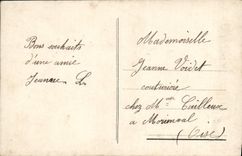 Bons souhaits
d'une amie
Jeanne
Mademoiselle
Jeanne Voidet
couturière
chez Mme Cailleux
à
(Oise)